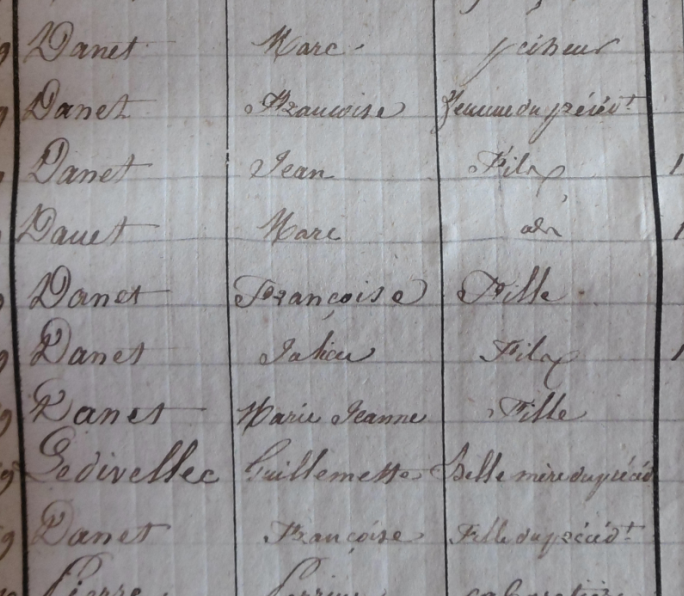 Danet Marc pêcheur
Danet Françoise femme du précédt
Danet Jean Fils
Danet Marc id
Danet Françoise Fille
Danet Julien Fils
Danet Marie Jeanne Fille
Ledivellec Guillemette Belle mère du précéd
Danet Françoise Fille du précédt
Pierre Perrine